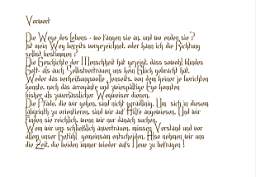 Vorwort
Die Wege des Lebens - wo fangen sie an, und wo enden sie?
Ist mein Weg bereits vorgezeichnet, oder kann ich die Richtung
selbst bestimmen?
Die Geschichte der Menschheit hat gezeigt, dass sowohl blindes
Gott- als auch Selbstvertrauen uns kein Glück gebracht hat.
Weder das verheißungsvolle Jenseits, von dem keiner je berichten
konnte, noch das arrogante und zwiespältige Ego konnten
bisher als zuverlässiger Wegweiser dienen.
Die Pfade, die wir gehen, sind nicht geradlinig. Um sich in diesem
Labyrinth zu orientieren, sind wir auf Hilfe angewiesen. Und wir
finden sie reichlich, wenn wir nur danach suchen.
Wem wir uns schließlich anvertrauen, müssen Verstand und vor
allem unser Gefühl, gemeinsam entscheiden. Also nehmen wir uns
die Zeit, die beiden immer wieder aufs Neue zu befragen!